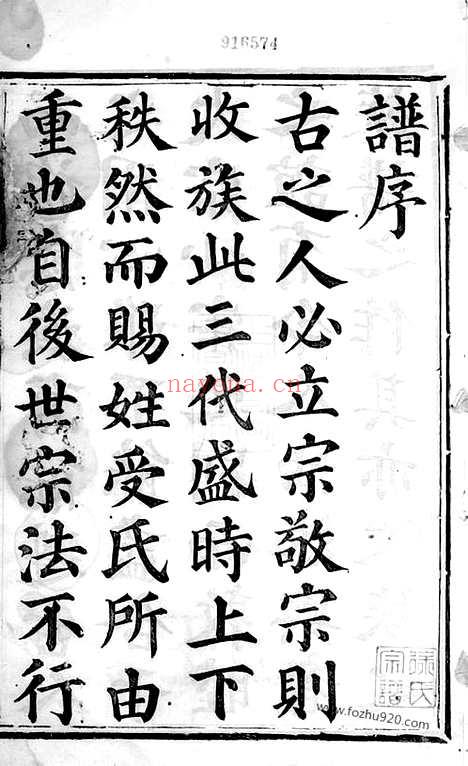 916574
譜序
古之人必立宗敬宗則
收族此三代盛時上下
秩然而賜姓受氏所由
重也自後世宗法不行
nayona.cn
宗譜
www.fozhu920.com